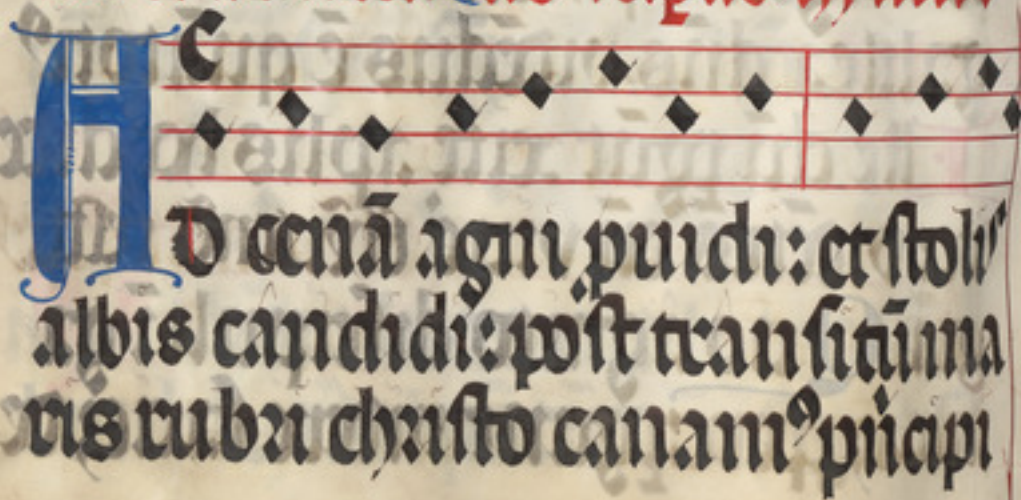 AD cenā agni puidi: et stoli
albis candidi: post transitū ma
ris rubri christo canamꝰ pͥncipi